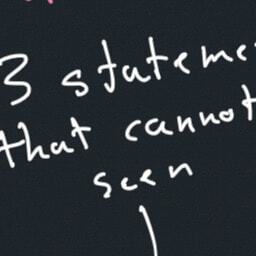 3 stateme
that cannot
seen